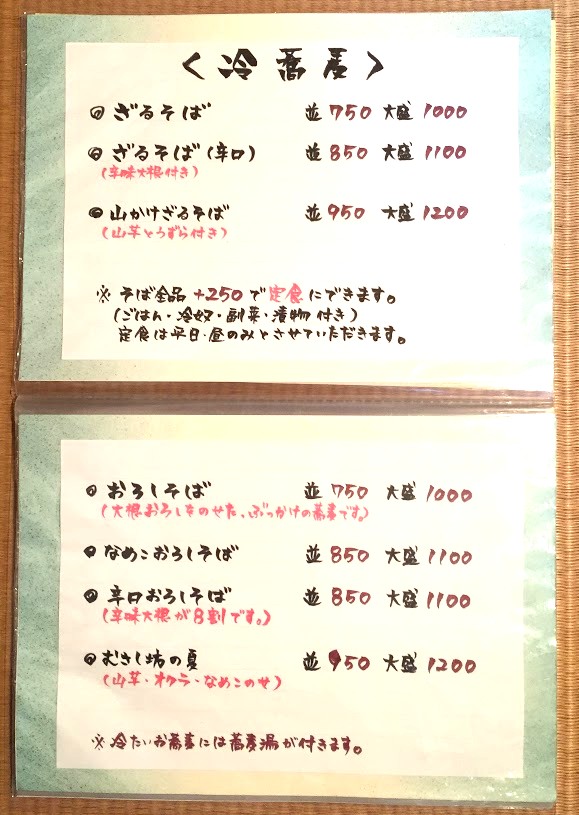 〈冷蕎麦〉
ざるそば 並750 大盛1000
ざるそば(辛口) 並850 大盛1100
(辛味大根付き)
山かけざるそば 並950 大盛1200
(山芋とうずら付き)
※そば全品+250で定食にできます。
(ごはん・冷奴・副菜・漬物付き)
定食は平日・昼のみとさせていただきます。
おろしそば 並750 大盛1000
(大根おろしをのせた、ぶっかけの蕎麦です。)
なめこおろしそば 並850 大盛1100
辛口おろしそば 並850 大盛1100
(辛味大根が8割です。)
むさし坊の夏 並950 大盛1200
(山芋・オクラ・なめこのせ)
※冷たいお蕎麦には蕎麦湯が付きます。